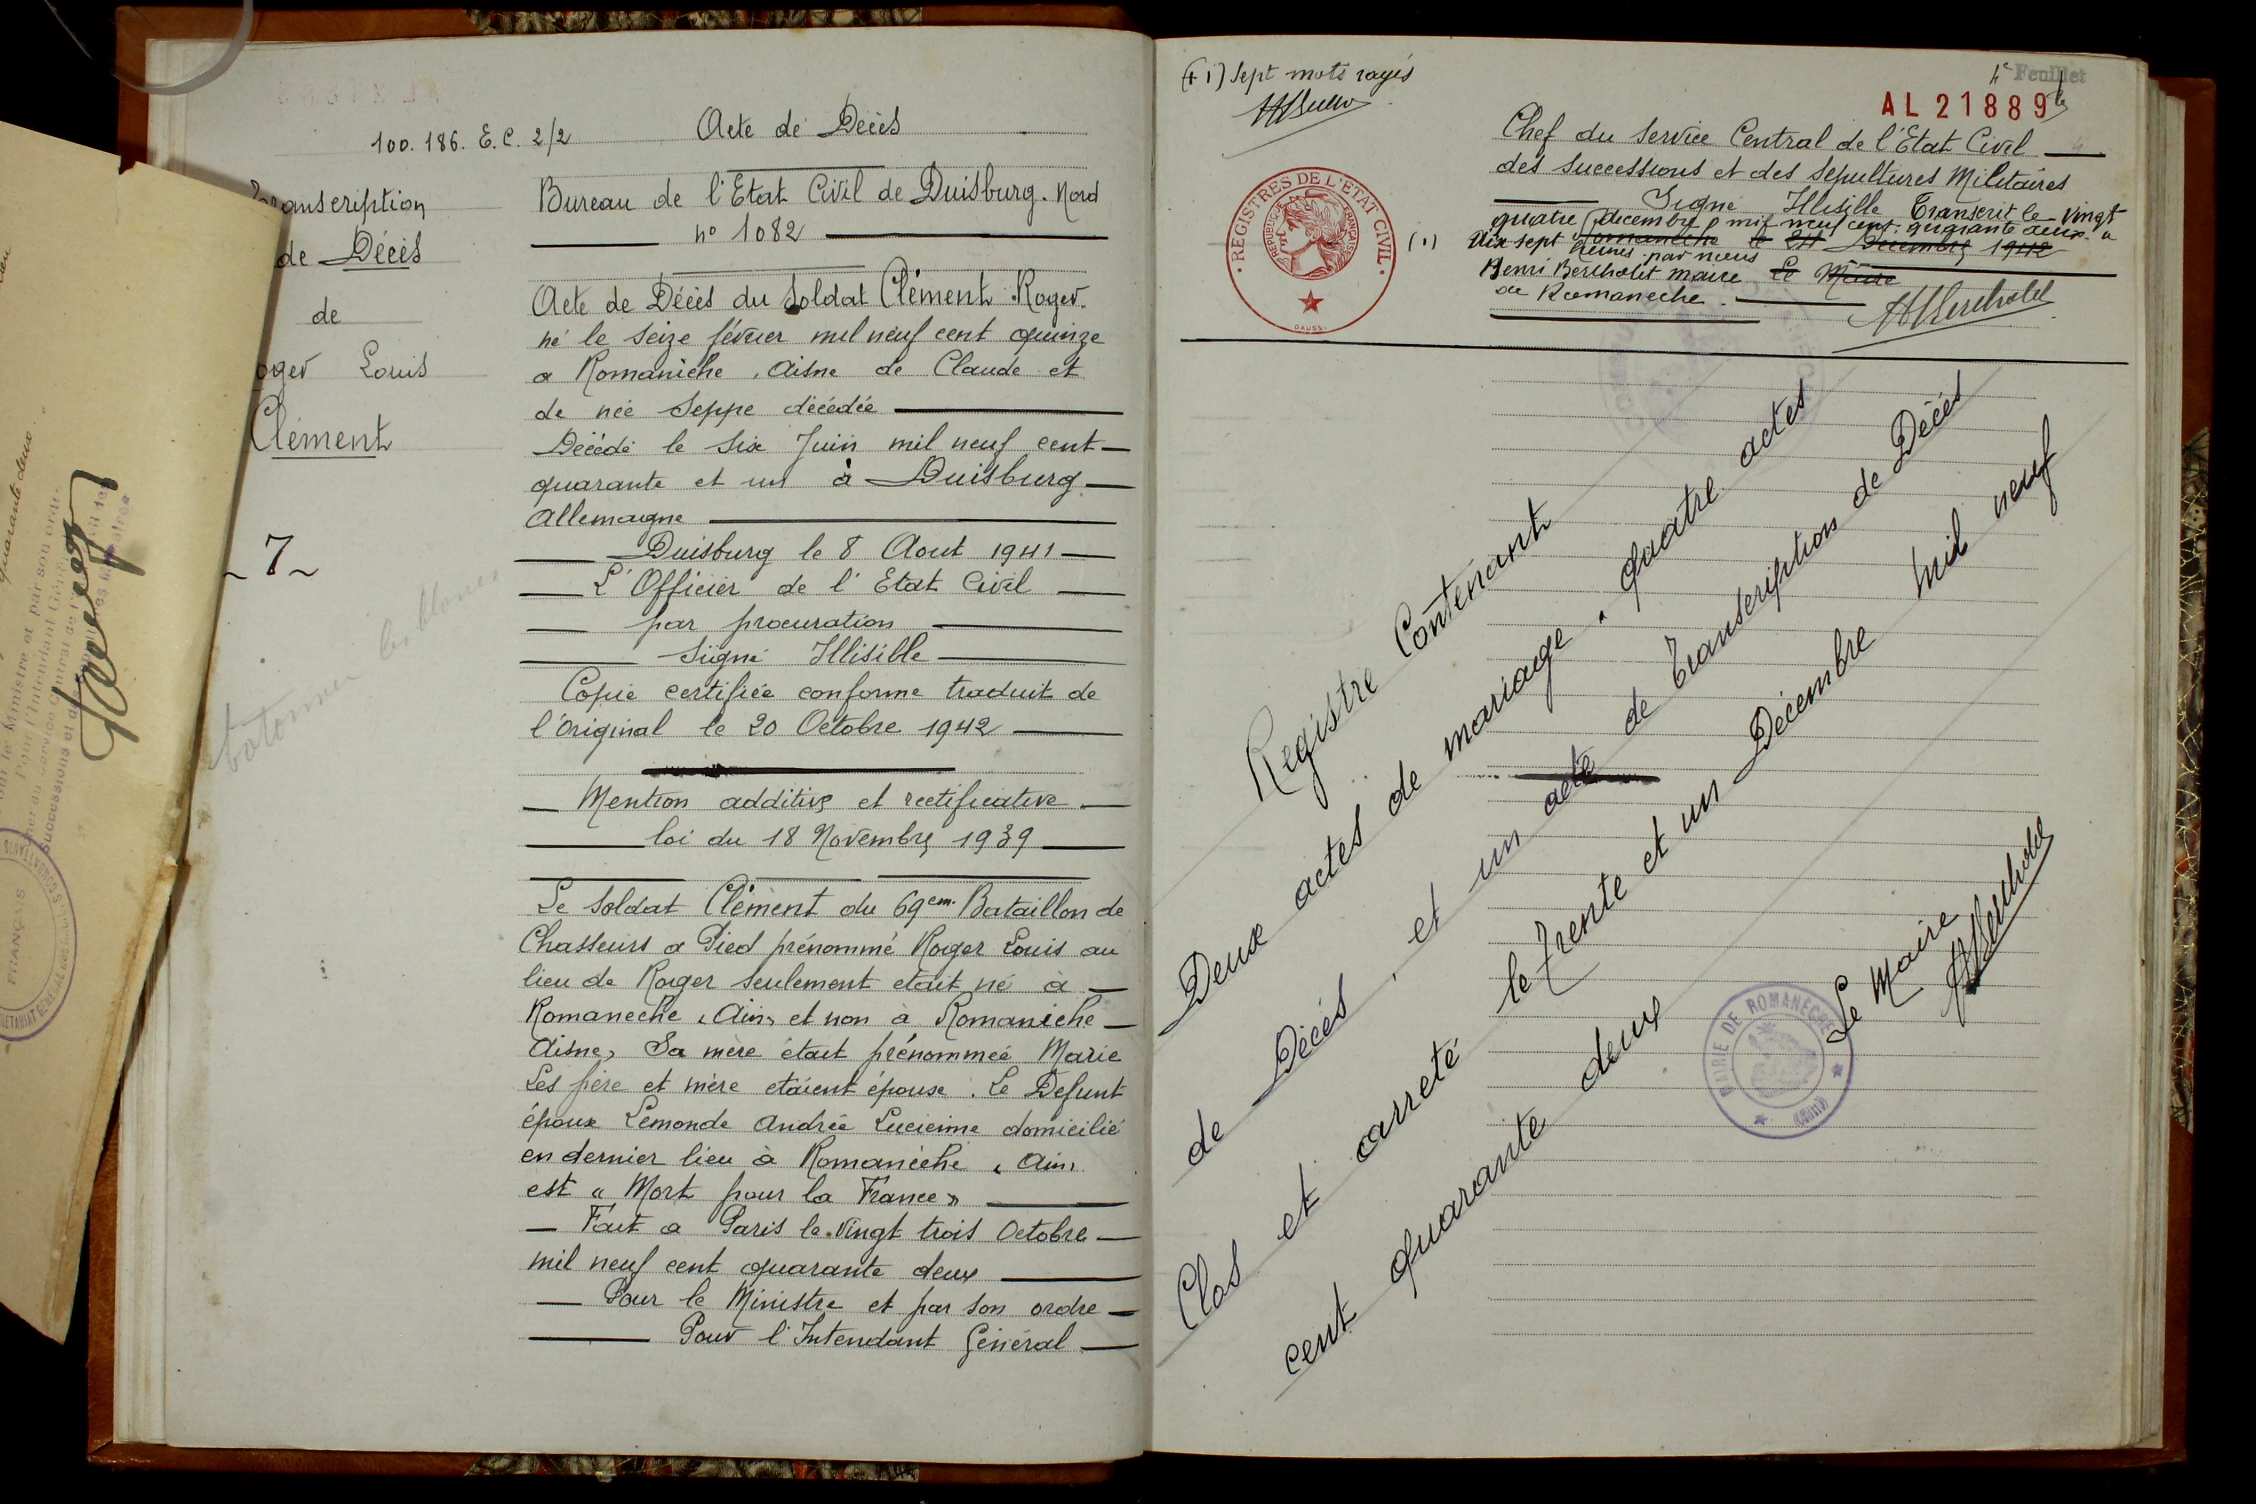 100.186. E.C. 2/2
Transcription
de Décès
de
Roger Louis
Clément
~ 7 ~
Acte de Décès
Bureau de l'Etat Civil de Duisburg. Nord
n° 1082
Acte de Décès du Soldat Clément Roger.
né le seize février mil neuf cent quinze
a Romanèche, Aisne de Claude et
de née Seppe décédée
Décédé le six Juin mil neuf cent
quarante et un à Duisburg
Allemagne
Duisburg le 8 Aout 1941
L'Officier de l'Etat Civil
par procuration
Signé Illisible
Copie certifiée conforme traduit de
l'original le 20 Octobre 1942
Mention additive et rectificative
loi du 18 Novembre 1939
Le Soldat Clément du 69em Bataillon de
Chasseurs a Pied prénommé Roger Louis au
lieu de Roger seulement etait né à
Romanèche (Ain) et non à Romanieche
Aisne, Sa mère était prénommée Marie
Les père et mère etaient épouse. Le Defunt
époux Lemonde Andrée Lucienne domicilié
en dernier lieu à Romanèche (Ain)
est "Mort pour la France"
Fait a Paris le vingt trois Octobre
mil neuf cent quarante deux
Pour le Ministre et par son ordre
Pour l'Intendant Général
(1) Sept mots rayés
4e Feuillet
AL 21889
Chef du Service Central de l'Etat Civil
des successions et des sépultures Militaires
Signé Illisible Transcrit le vingt
quatre decembre mil neuf cent quarante deux a
(1) dix sept Romanèche le 24 Decembre 1942
heures par nous
Henri Bertholet maire Le Maire
de Romanèche.
HBertholet
REGISTRES DE L'ETAT CIVIL
REPUBLIQUE FRANÇAISE
Registre Contenant
Deux actes de mariage. quatre actes
de Décès, et un acte de transcription de Décés
Clos et arreté le Trente et un Décembre mil neuf
cent quarante deux
Le Maire
HBertholet
MAIRIE DE ROMANÈCHE
(Ain)
quarante deux.
le Ministre et par son ordre
Pour l'Intendant
FRANÇAIS